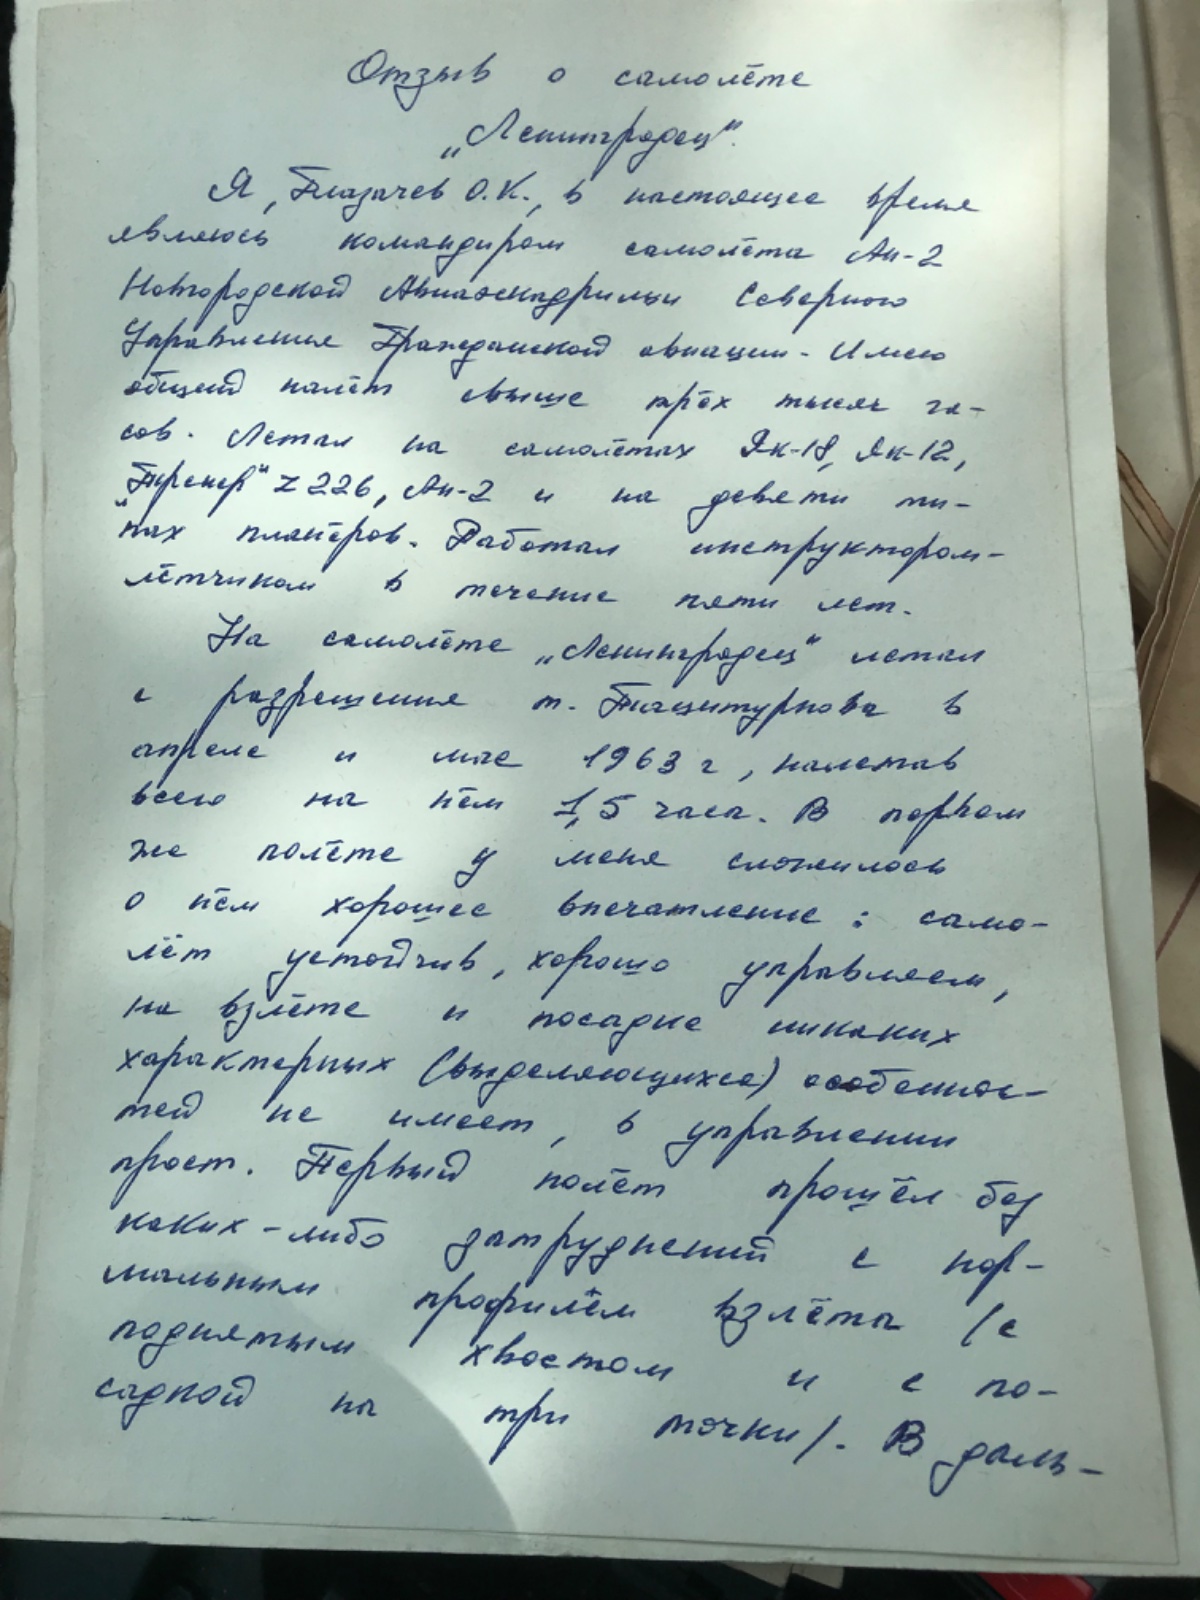 Отзыв о самолёте
„Ленинградец".
Я, О.К., в настоящее время
являюсь командиром самолёта Ан-2
Новгородской Авиаэскадрильи Северного
Управления Гражданской авиации. Имею
общий налёт свыше трёх тысяч ча-
сов. Летал на самолётах Як-18, Як-12,
„Тренер" Z 226, Ан-2 и на девяти ти-
пах планёров. Работал инструктором-
лётчиком в течение пяти лет.
На самолёте „Ленинградец" летал
с разрешения т. в
апреле и мае 1963 г, налетав
всего на нём 1,5 часа. В первом
же полёте у меня сложилось
о нём хорошее впечатление: само-
лёт устойчив, хорошо управляем,
на взлёте и посадке никаких
характерных (выделяющихся) особеннос-
тей не имеет, в управлении
прост. Первый полёт прошёл без
каких-либо затруднений с нор-
мальным профилем взлёта /с
поднятым хвостом и с по-
садкой на три точки/. В даль-